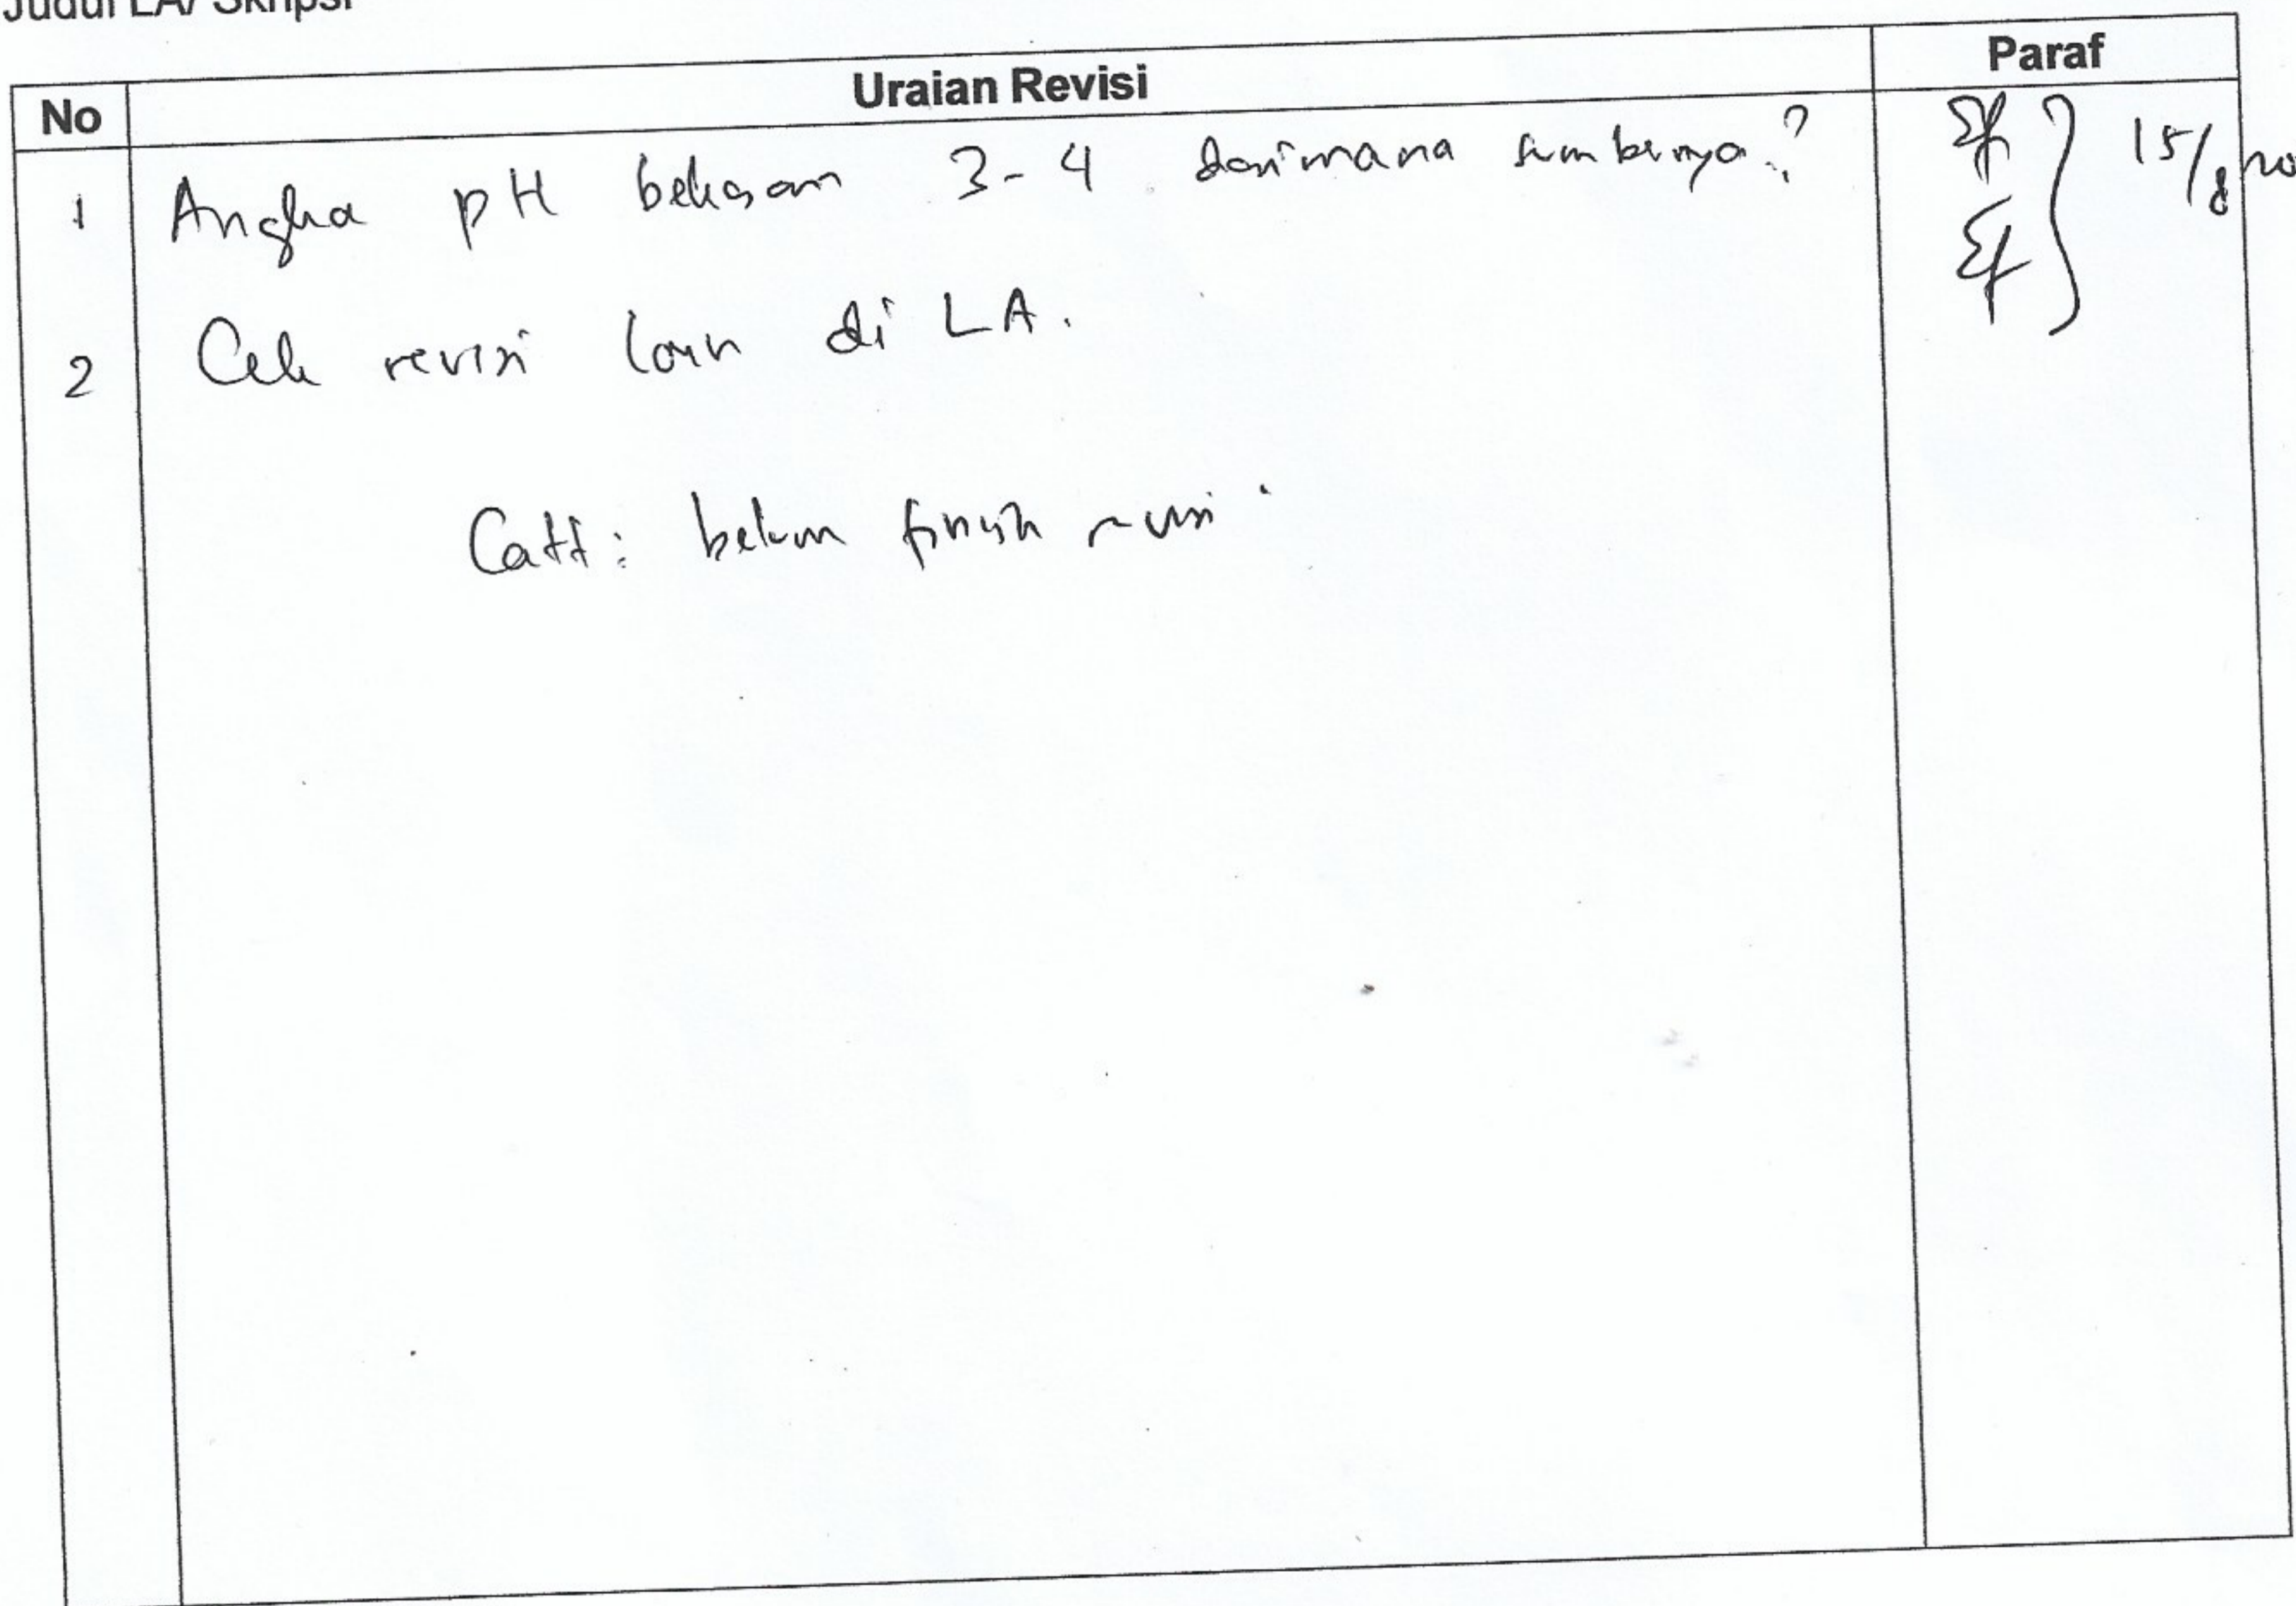 Judul LA/ Skripsi
No Uraian Revisi Paraf
1 Angka pH bekasam 3-4 darimana sumbernya? 15/8
2 Cek revisi lain di LA.
Catt: belum finish revisi